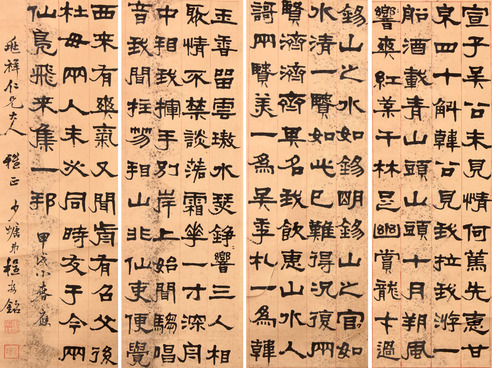 宣子吳公見我情何篤先惠甘
泉四十斛韓公見我拉我游一
船酒載青山頭山頭十月朔風
響爽紅葉千林邑幽賞過
錫山之水如錫朙錫山之官如
水清一賢如此已難得況復兩
賢濟濟齊其名我飲惠山水人
謌兩賢美一為吳季札一為韓
玉香留雲璈水琴錚響三人相
聚情不禁談霜華一寸深門
中相我揮手別岸上始聞騶唱
音我聞拄笏相山北仙吏便覺
西來有爽氣又聞有名父後
杜母兩人未必同時交于今兩
仙鳧飛來集一邦 甲戌小春
祥仁兄大人 正 少弟程銘